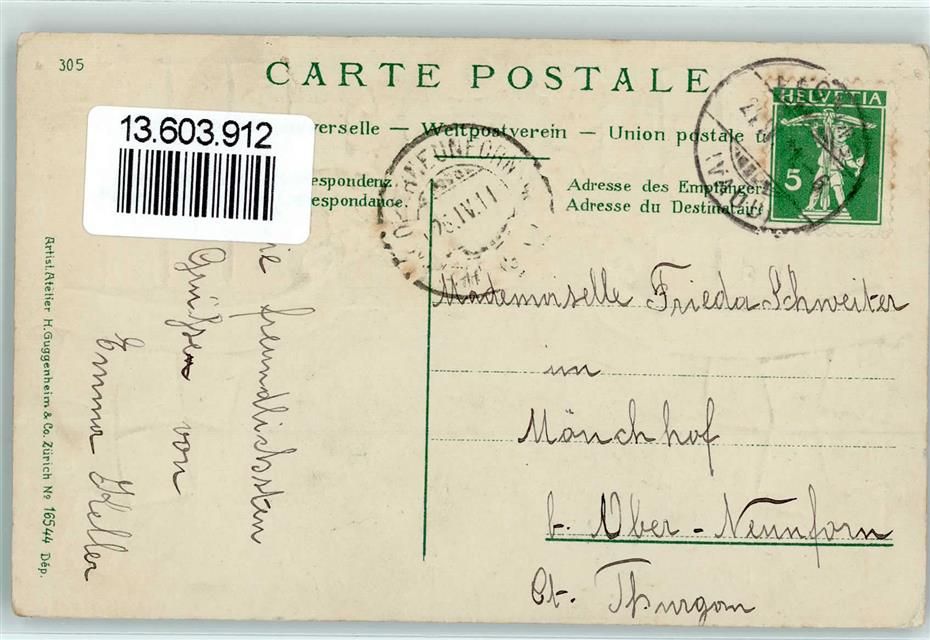 305
CARTE POSTALE
13.603.912
verselle — Weltpostverein — Union postale u
respondenz.
respondance.
Adresse des Empfängers
Adresse du Destinataire
HELVETIA
5
OBERNEUNFORN
25.IV.11
ie freundlichsten
Grüsse von
Emma Keller
Mademoiselle Frieda Schweiter
im
Mönchhof
b. Ober-Neunforn
Ct. Thurgau
Artist. Atelier H. Guggenheim & Co. Zürich No 16544 Dép.